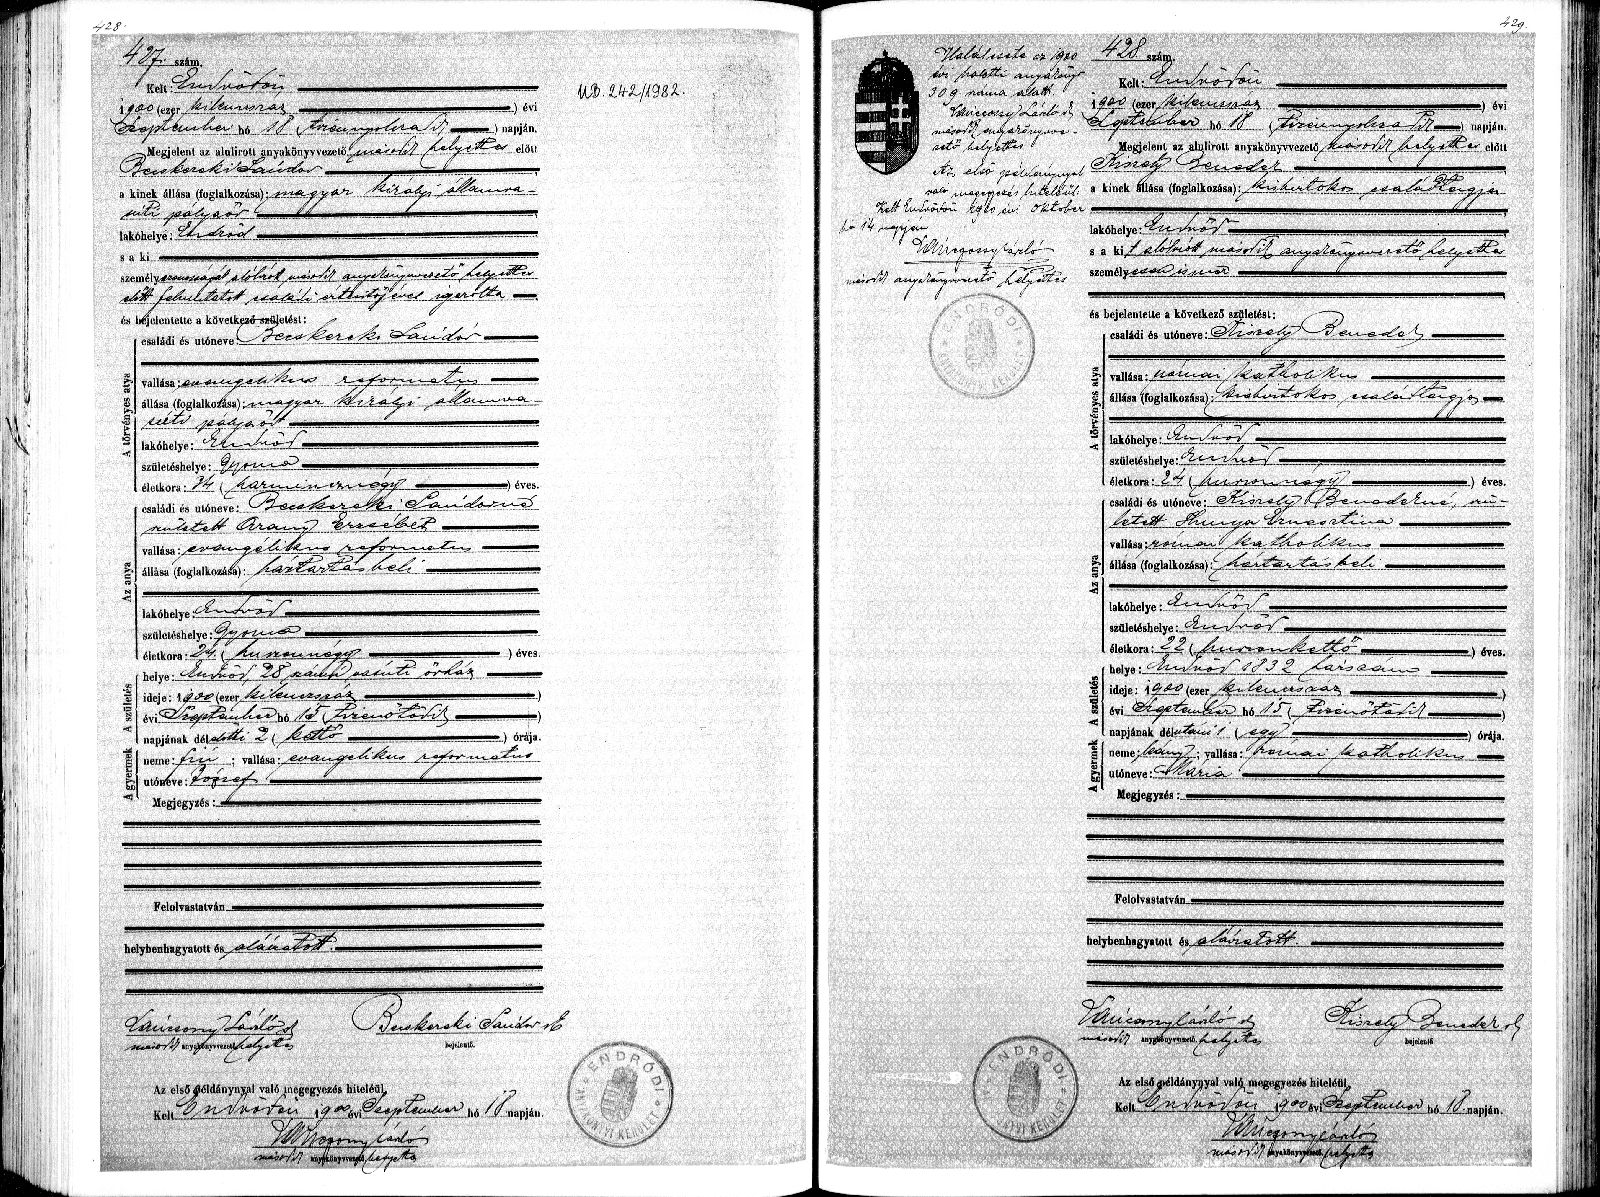 428.
427. szám.
Kelt: Endrődön
1900 (ezer kilenczszáz) évi
Szeptember hó 18 (tizennyolczadik) napján.
Megjelent az alulirott anyakönyvvezető második helyettes előtt
Becskereki Sándor
a kinek állása (foglalkozása): magyar királyi államva-
suti pályaőr
lakóhelye: Endrőd
s a ki
személyazonosságát alólirott második anyakönyvvezető helyettes
előtt felmutatott családi értesitőjével igazolta
és bejelentette a következő születést:
A törvényes atya
családi és utóneve: Becskereki Sándor
vallása: evangelikus reformatus
állása (foglalkozása): magyar királyi államva-
suti pályaőr
lakóhelye: Endrőd
születéshelye: Gyoma
életkora: 34 (harmincznégy) éves.
Az anya
családi és utóneve: Becskereki Sándorné
született Arany Erzsébet
vallása: evangélikus reformatus
állása (foglalkozása): háztartásbeli
lakóhelye: Endrőd
születéshelye: Gyoma
életkora: 24 (huszonnégy) éves.
A születés
helye: Endrőd, 28. számu vasuti őrház
ideje: 1900 (ezer kilenczszáz)
évi Szeptember hó 15 (tizenötödik)
napjának délelőtti 2 (kettő) órája.
A gyermek
neme: fiú; vallása: evangelikus reformatus
utóneve: József
Megjegyzés:
Felolvastatván
helybenhagyatott és aláiratott.
Vaszkó
második anyakönyvvezető helyettes
Becskereki Sándor sk
bejelentő.
Az első példánynyal való megegyezés hiteléül,
Kelt Endrődön 1900 évi Szeptember hó 18 napján.
második anyakönyvvezető helyettes
ENDRŐDI
ANYAKÖNYVI KERÜLET
UB. 242/1982.
429
Halálesete az 1920
évi halotti anyakönyv
309 száma alatt
második anyakönyvve-
zető helyettes
Az első példánynyal
való megegyezés hiteléül.
Kelt Endrődön 1920 évi Oktober
hó 14 napján
második anyakönyvvezető helyettes
ENDRŐDI
ANYAKÖNYVI KERÜLET
428 szám.
Kelt: Endrődön
1900 (ezer kilenczszáz) évi
Szeptember hó 18 (tizennyolczadik) napján.
Megjelent az alulirott anyakönyvvezető második helyettes előtt
Kiszely Benedek
a kinek állása (foglalkozása): kisbirtokos családtagja
lakóhelye: Endrőd
s a kit alólirott második anyakönyvvezető helyettes
személyesen ismer
és bejelentette a következő születést:
A törvényes atya
családi és utóneve: Kiszely Benedek
vallása: római katholikus
állása (foglalkozása): kisbirtokos családtagja
lakóhelye: Endrőd
születéshelye: Endrőd
életkora: 24 (huszonnégy) éves.
Az anya
családi és utóneve: Kiszely Benedekné, szü-
letett Hunya Ernesztina
vallása: római katholikus
állása (foglalkozása): háztartásbeli
lakóhelye: Endrőd
születéshelye: Endrőd
életkora: 22 (huszonkettő) éves.
A születés
helye: Endrőd 1832 házszám
ideje: 1900 (ezer kilenczszáz)
évi Szeptember hó 15 (tizenötödik)
napjának délutáni 1 (egy) órája.
A gyermek
neme: leány; vallása: római katholikus
utóneve: Mária
Megjegyzés:
Felolvastatván
helybenhagyatott és aláiratott.
második anyakönyvvezető helyettes
Kiszely Benedek sk
bejelentő
Az első példánynyal való megegyezés hiteléül,
Kelt Endrődön 1900 évi Szeptember hó 18. napján.
második anyakönyvvezető helyettes
ENDRŐDI
ANYAKÖNYVI KERÜLET